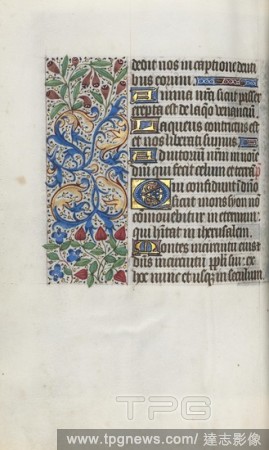 dedit nos in captione denti
bus eorum.
Anima nr̃a sicut passer
erepta est de laq̃o venanciũ
Laqueus contritus est
et nos liberati sumus
Adiutoriũm nr̃m in noĩe
dñi qui fecit celum et terrã
Qui confidunt ĩ dño
sicut mons syon nõ
cõmouebitur in eternum
qui hĩtat in iherusalem
Montes in circuitu eius et
dñs in circuitu ppl̃i sui ex
hoc nunc et usq̃ in seculum
TPG
www.tpgnews.com/達志影像